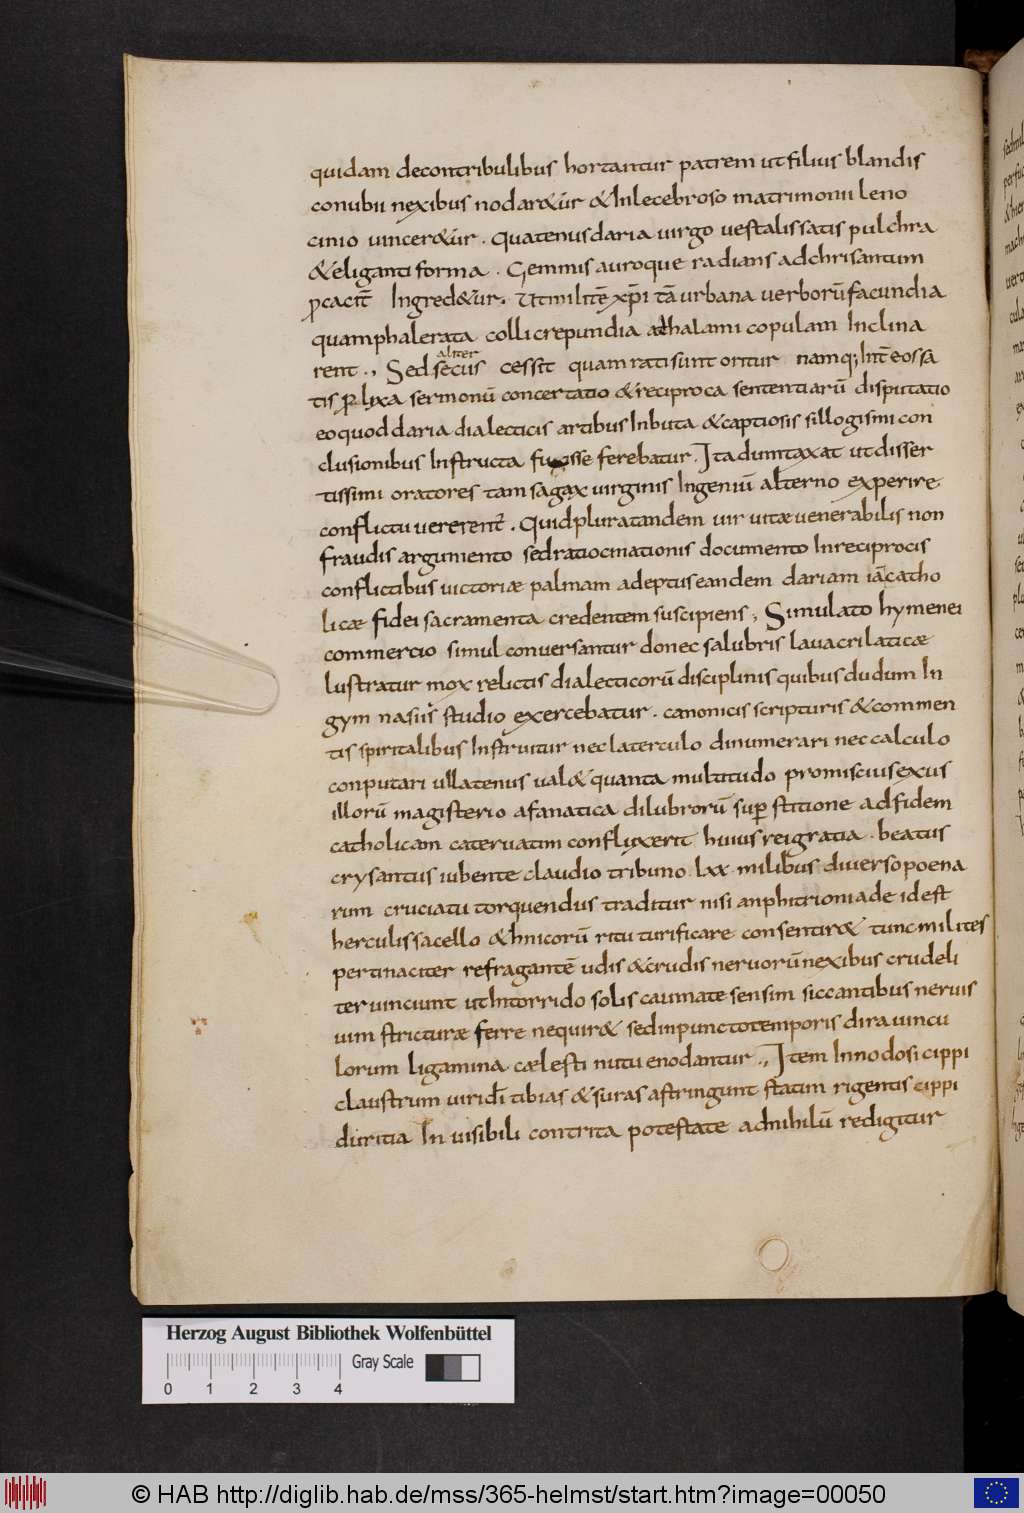 quidam decontribulibus hortantur patrem ut filius blandis
conubii nexibus nodar&ur &inlecebroso matrimonii leno
cinio vincer&ur. Quatenus daria virgo vestalis satis pulchra
&eliganti forma. Gemmis auroque radians adchrisantum
ꝓcacit̄ Ingred&ur. Ut milite͞ xp̄i tā urbana verborū facundia
quam phalerata colli crepundia adthalami copulam Inclina
aliter
rent., Sed secus cessit quam rati sunt oritur namq; Int̄ eos sa
tis ꝓlixa sermonū concertatio &reciproca sententiarū disputatio
eo quod daria dialecticis artibus Inbuta &captiosis sillogismi con
clusionibus Instructa fuisse ferebatur. Ita dumtaxat ut disser
tissimi oratores tam sagax virginis Ingeniū alterno experire
conflictu vererent̄. Quid plura tandem vir vitae venerabilis non
fraudis argumento sed ratiocinationis documento In reciprocis
conflictibus victoriæ palmam adeptus eandem dariam iā catho
licæ fidei sacramenta credentem suscipiens; Simulato hymenei
commercio simul conversantur donec salubris lavacri laticæ
lustratur mox relictis dialecticorū disciplinis quibus dudum In
gymnasiis studio exercebatur. canonicis scripturis &commen
tis spiritalibus Instruitur nec laterculo dinumerari nec calculo
conputari ullatenus val& quanta multitudo promiscui sexus
illorū magisterio a fanatica dilubrorū suꝑstitione ad fidem
catholicam catervatim confluxerit huius rei gratia. beatus
crysantus iubente claudio tribuno. lxx. milibus diverso poena
rum cruciatu torquendus traditur nisi anphitrioniade id est
herculis sacello &hnicorū ritu turificare consentir& tunc milites
pertinaciter refragante͞ udis &crudis nervorū nexibus crudeli
ter vinciunt ut In torrido solis caumate sensim siccantibus nervis
vim stricturæ ferre nequir& sed in puncto temporis dira vincu
lorum ligamina cælesti nutu enodantur., Item In nodosi cippi
claustrum viridi tibias &suras astringunt statim rigentis cippi
duritia In visibili contrita potestate ad nihilū redigitur
Herzog August Bibliothek Wolfenbüttel
Gray Scale
0 1 2 3 4
© HAB http://diglib.hab.de/mss/365-helmst/start.htm?image=00050